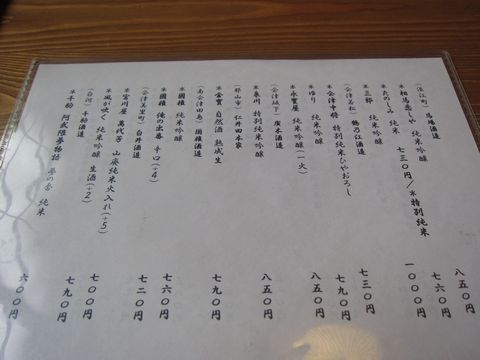 (浪江町) 馬場酒造
※相馬恋しや 純米吟醸 八五〇円
※たのしみ 純米 七三〇円/※特別純米 七六〇円
※三郎 純米吟醸 一〇〇〇円
(会津若松) 鶴乃江酒造
※会津中将 特別純米ひやおろし 七三〇円
※ゆり 純米吟醸 七九〇円
※永寶屋 純米吟醸(一火) 八五〇円
(会津坂下) 廣木酒造
※泉川 特別純米吟醸 八五〇円
(郡山市) 仁井田本家
※金寶 自然酒 熟成生 七九〇円
(南会津田島) 國権酒造
※國権 純米吟醸 七六〇円
※國権 俺の出番 辛口(+4) 七二〇円
(会津美里町) 白井酒造
※宮川屋 萬代芳 山廃純米火入れ(+5) 七〇〇円
※風が吹く 純米吟醸 生酒(+2) 七九〇円
(白河) 千駒酒造
※千駒 阿武隈夢物語 夢の香 純米 六〇〇円